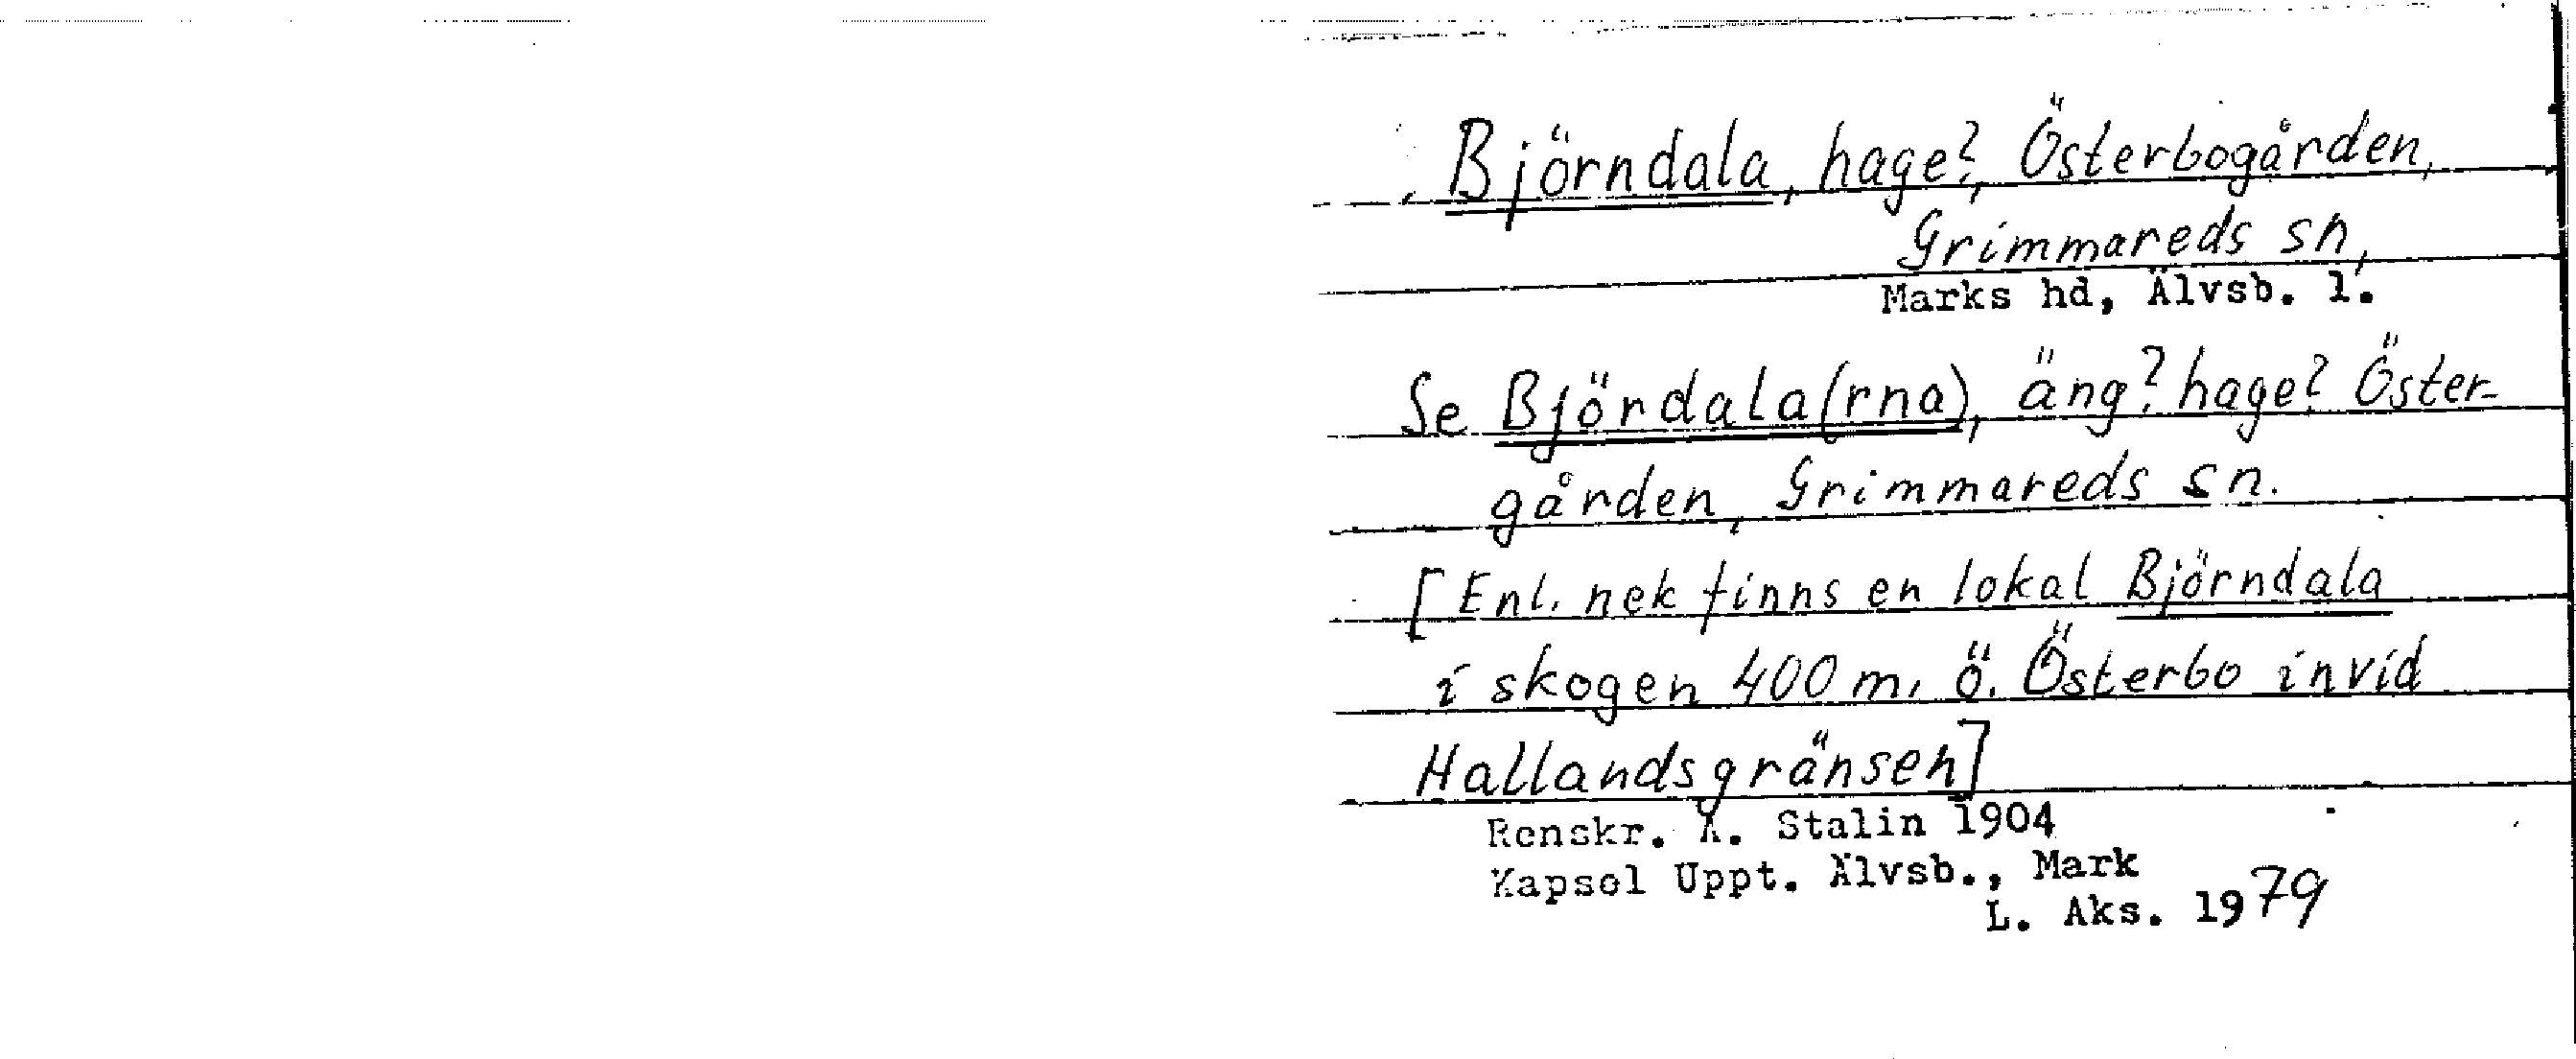 Björndala, hage?, Österbogården,
Grimmareds sn,
Marks hd, Älvsb. l.
Se Björdala(rna), äng? hage? Öster-
gården, Grimmareds sn.
[Enl. nek finns en lokal Björndala
i skogen 400 m. ö. Österbo invid
Hallandsgränsen]
Renskr. K. Stalin 1904
Kapsel Uppt. Älvsb., Mark
L. Aks. 1979